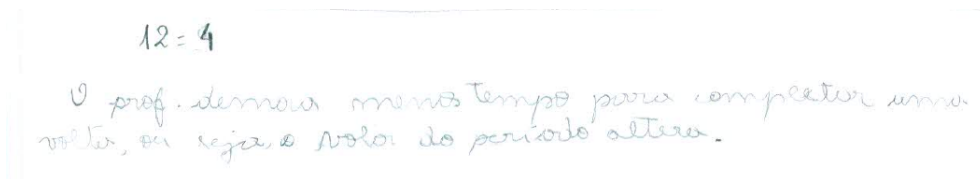 12 = 4
O prof. demora menos tempo para completar uma
volta, ou seja, o valor do período altera.